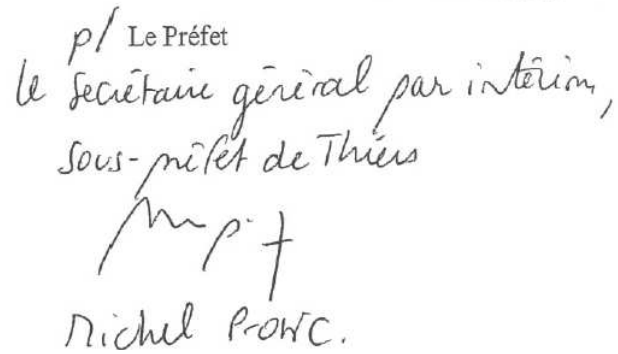 p/ Le Préfet
le Secrétaire général par intérim,
sous-préfet de Thiers
Michel